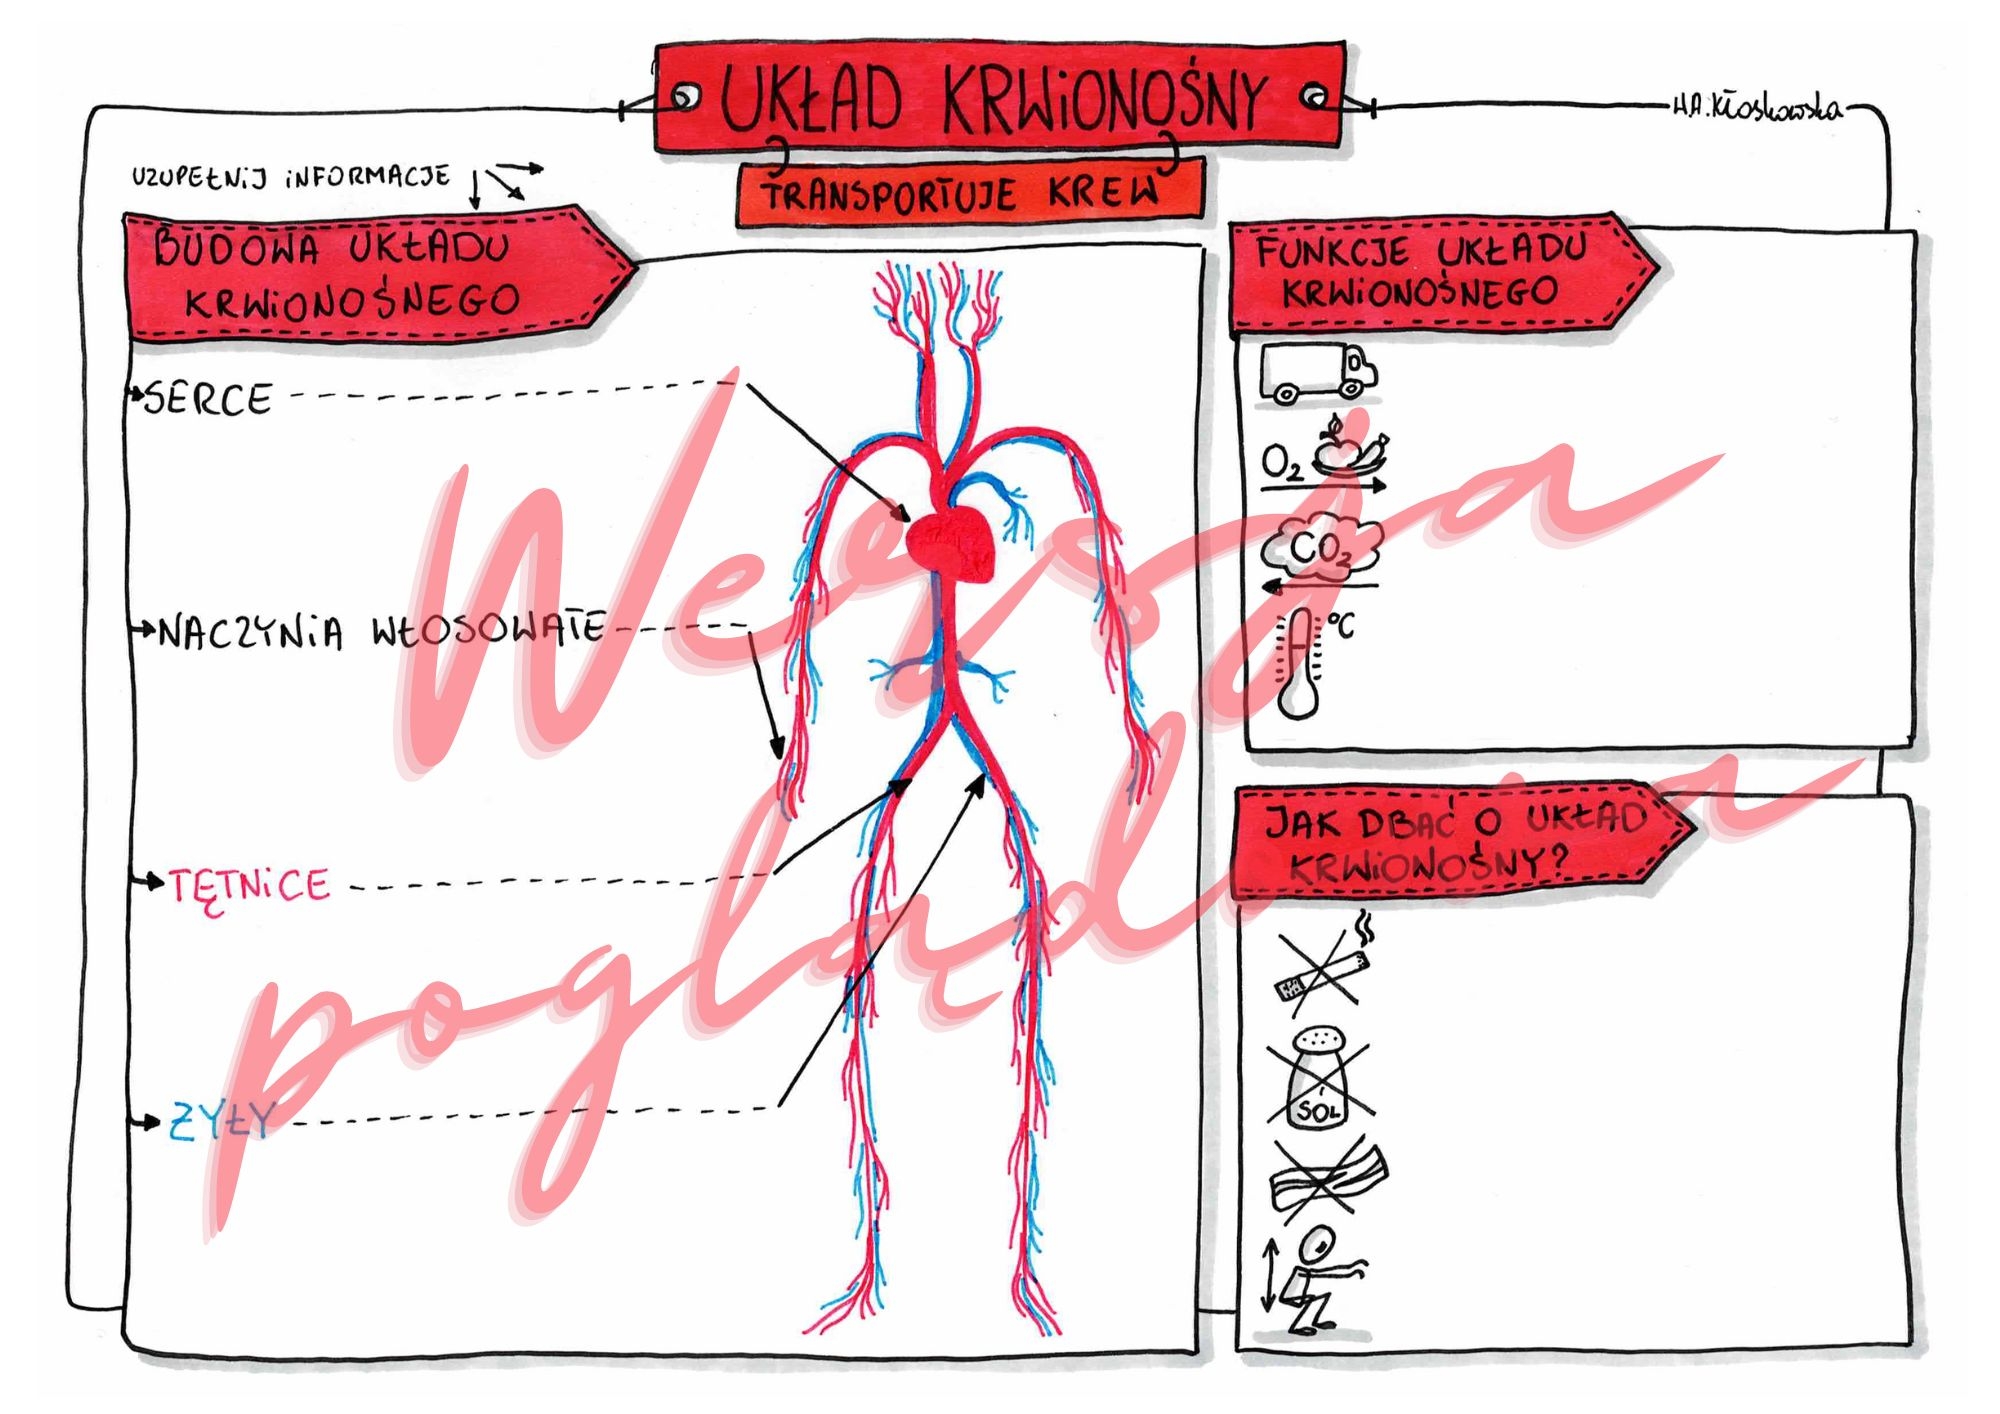 UKŁAD KRWiONOŚNY
H.A.Kłoskowska
TRANSPORTUJE KREW
UZUPEŁNIJ iNFORMACJE
BUDOWA UKŁADU
KRWiONOŚNEGO
SERCE
NACZYNIA WŁOSOWATE
TĘTNiCE
ŻYŁY
FUNKCJE UKŁADU
KRWiONOŚNEGO
O₂
CO₂
°C
JAK DBAĆ O UKŁAD
KRWiONOŚNY?
SOL
Wersja
poglądowa